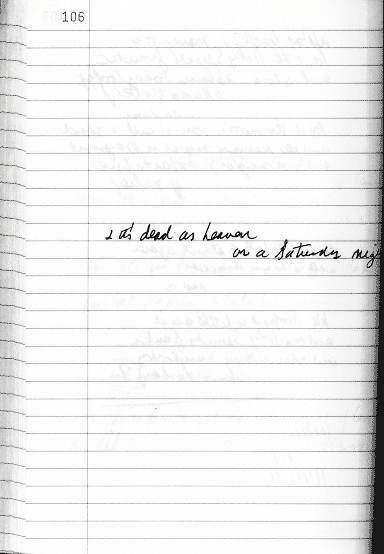 106
& it's dead as heaven
on a Saturday nig